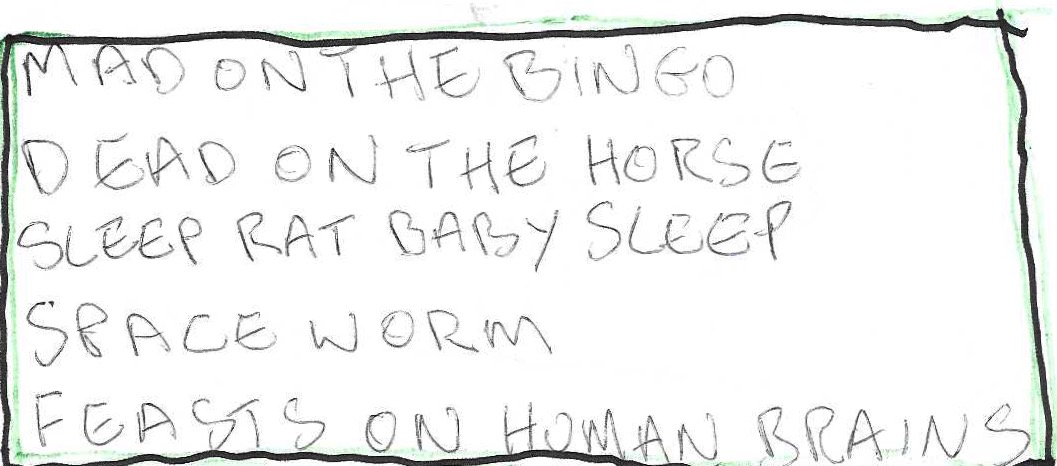 MAD ON THE BINGO
DEAD ON THE HORSE
SLEEP RAT BABY SLEEP
SPACE WORM
FEASTS ON HUMAN BRAINS